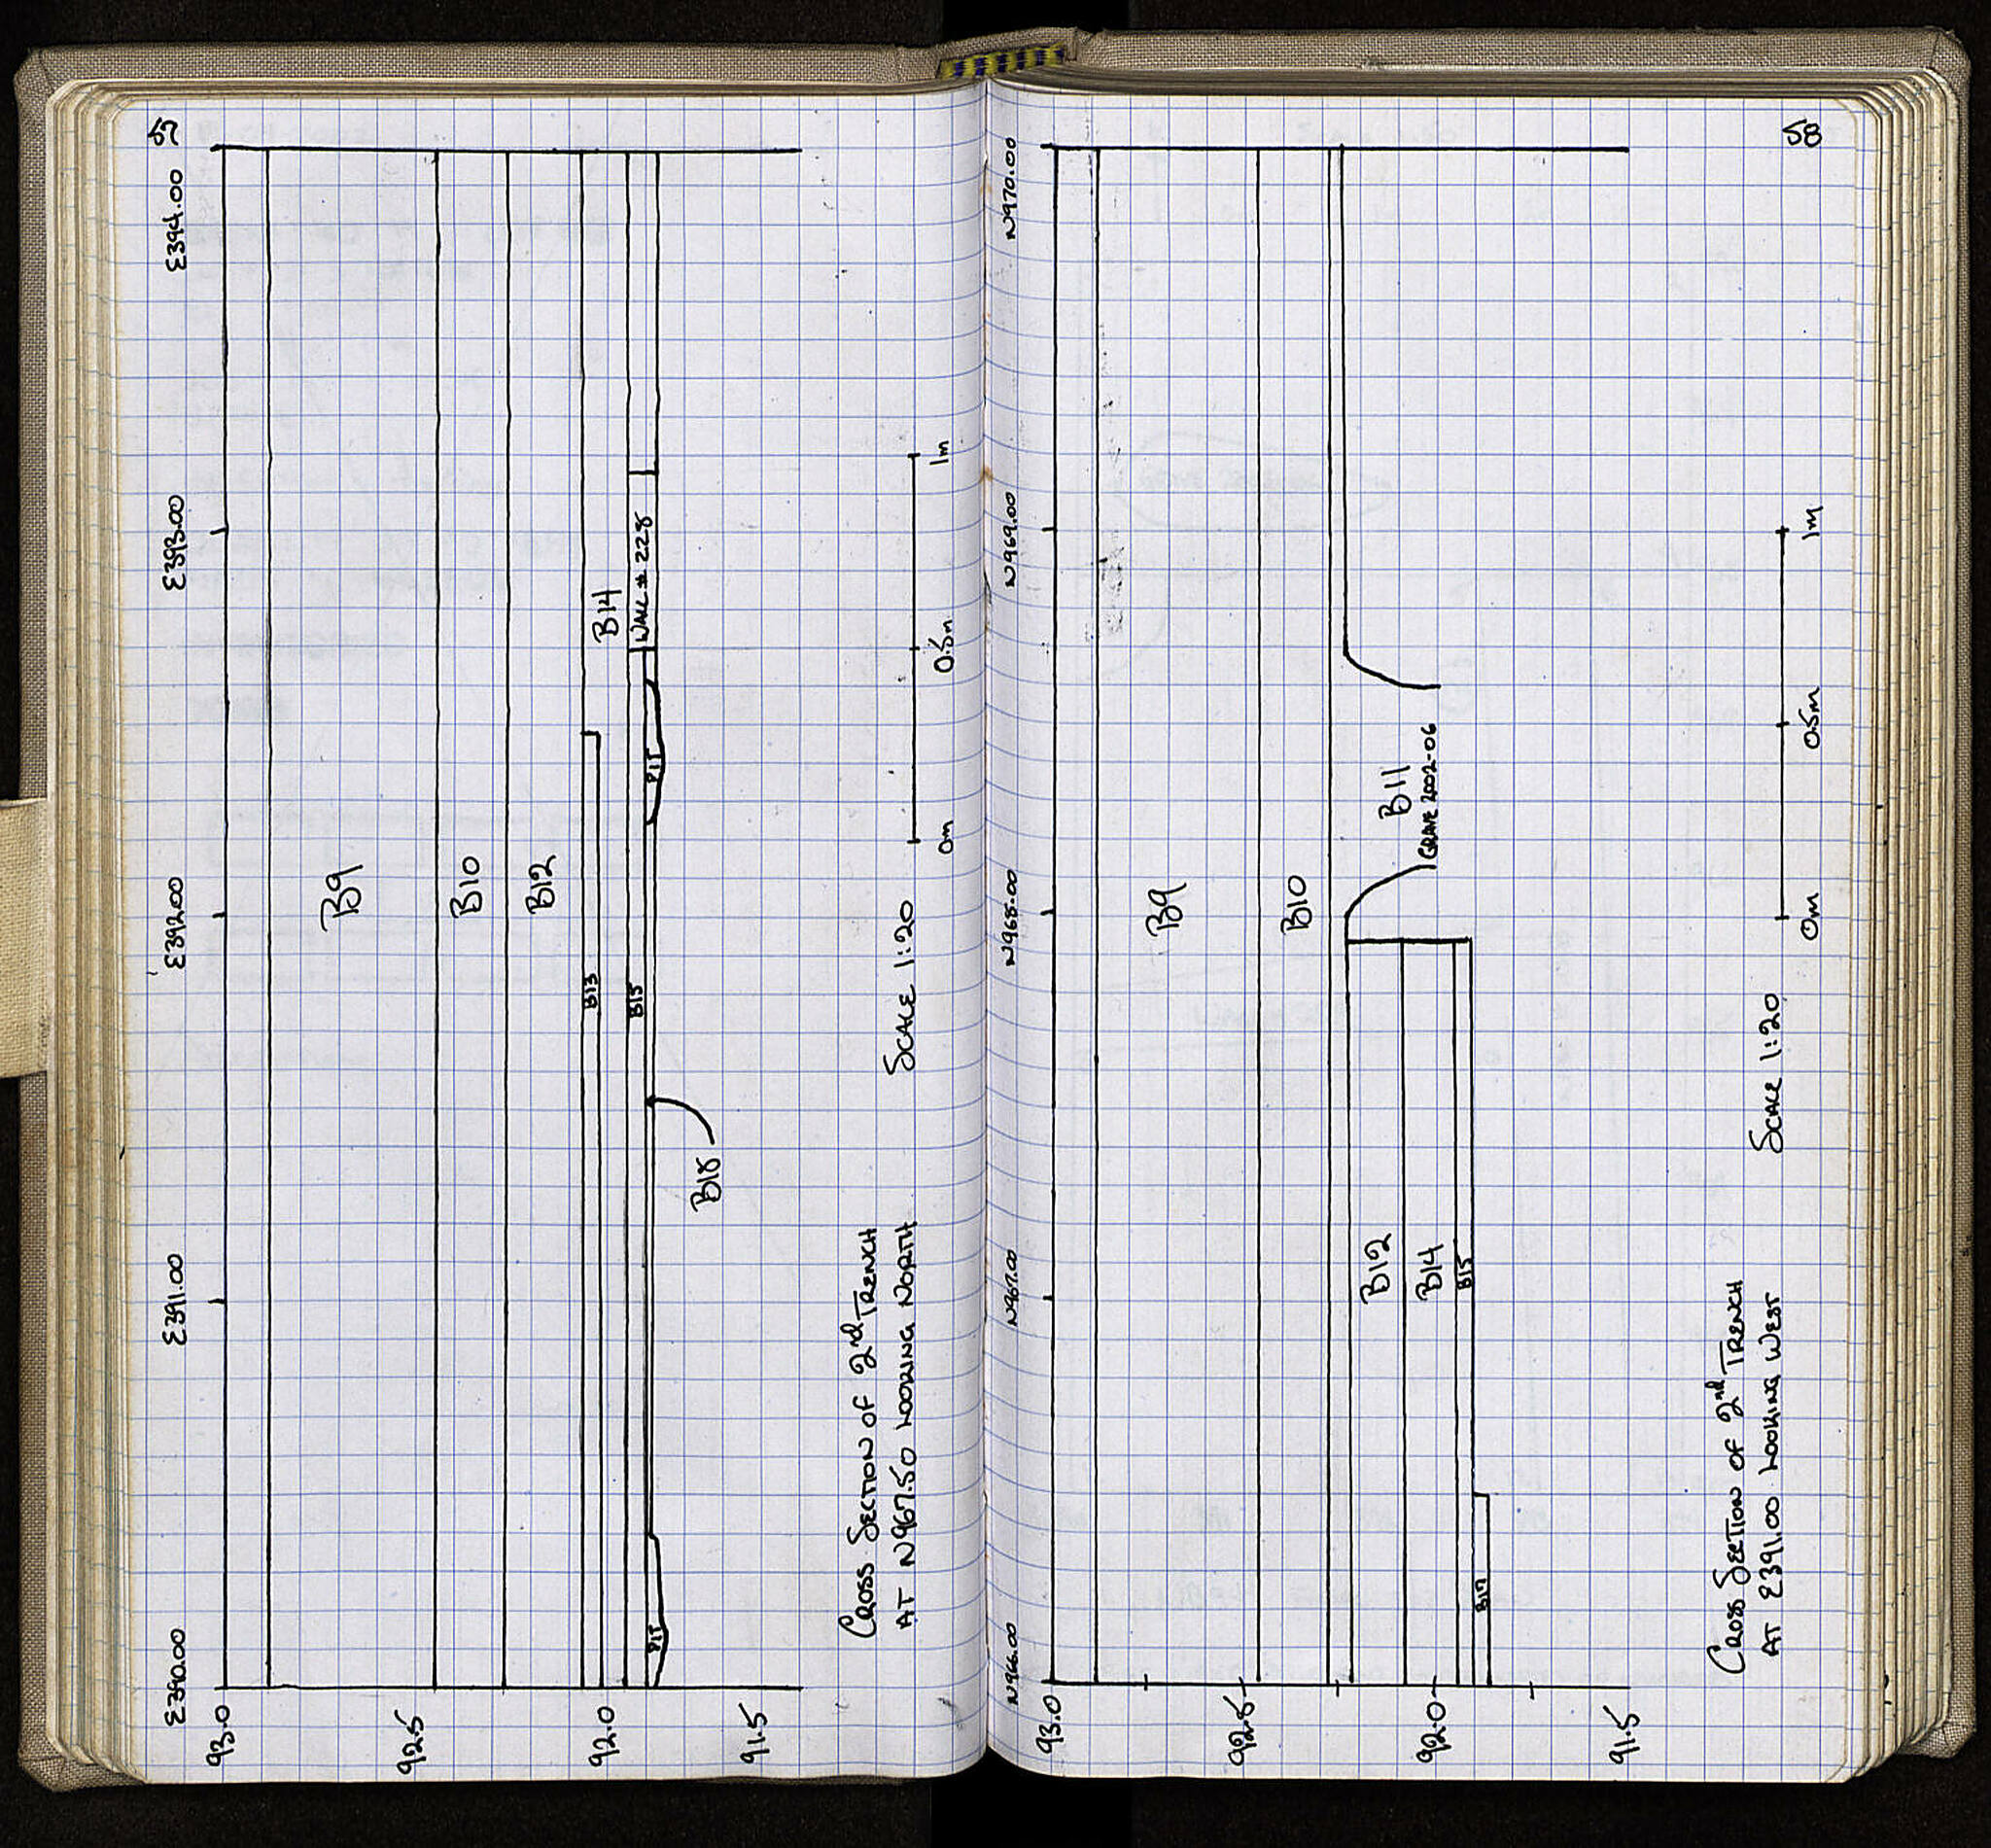 57
E390.00 E391.00 E392.00 E393.00 E394.00
93.0
92.5
92.0
91.5
B9
B10
B12
B13
B14
B15
WALL # 228
PIT
PIT
B18
SCALE 1:20
0m 0.5m 1m
CROSS SECTION OF 2nd TRENCH
AT N967.50 LOOKING NORTH
58
N966.00 N967.00 N968.00 N969.00 N970.00
93.0
92.5
92.0
91.5
B9
B10
B11
GRAVE 2002-06
B12
B14
B15
B17
SCALE 1:20
0m 0.5m 1m
CROSS SECTION OF 2nd TRENCH
AT E391.00 LOOKING WEST